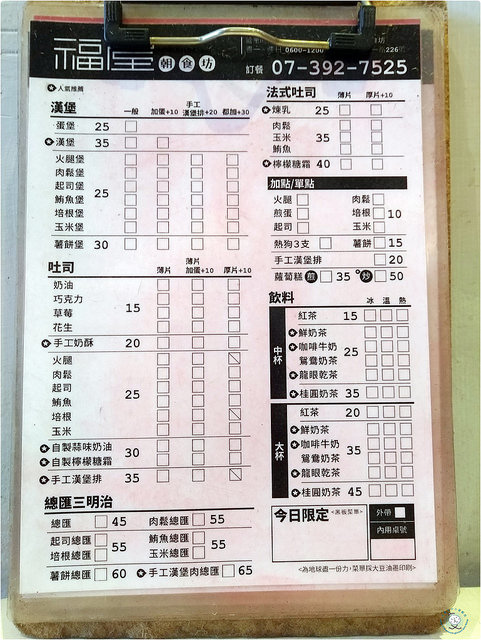 福屋 朝食坊
0600-1200
訂餐 07-392-7525
✪人氣推薦
漢堡 一般 加蛋+10 手工漢堡排+20 都加+30
蛋堡 25 □
✪漢堡 35 □ □
火腿堡 □ □ □ □
肉鬆堡 □ □ □ □
起司堡 25 □ □ □ □
鮪魚堡 □ □ □ □
培根堡 □ □ □ □
玉米堡 □ □ □ □
薯餅堡 30 □ □ □ □
吐司 薄片 薄片加蛋+10 厚片+10
奶油 □ □ □
巧克力 □ □ □
草莓 15 □ □ □
花生 □ □ □
✪手工奶酥 20 □ □ □
火腿 □ □ □
肉鬆 □ □ □
起司 25 □ □ □
鮪魚 □ □ □
培根 □ □ □
玉米 □ □ □
✪自製蒜味奶油 30 □ □ □
✪自製檸檬糖霜 □ □ □
✪手工漢堡排 35 □ □ □
總匯三明治
總匯 □ 45 肉鬆總匯 □ 55
起司總匯 □ 55 鮪魚總匯 □ 55
培根總匯 □ 玉米總匯 □
薯餅總匯 □ 60 ✪手工漢堡肉總匯 □ 65
法式吐司 薄片 厚片+10
✪煉乳 25 □ □
肉鬆 □ □
玉米 35 □ □
鮪魚 □ □
✪檸檬糖霜 40 □ □
加點/單點
火腿 □ 肉鬆 □
煎蛋 □ 培根 □ 10
起司 □ 玉米 □
熱狗3支 □ 薯餅 □ 15
手工漢堡排 □ 20
蘿蔔糕 煎 □ 35 炒 □ 50
飲料 冰 溫 熱
中杯
紅茶 15 □ □ □
✪鮮奶茶 □ □ □
✪咖啡牛奶 25 □ □ □
鴛鴦奶茶 □ □ □
✪龍眼乾茶 □ □ □
✪桂圓奶茶 35 □ □ □
大杯
紅茶 20 □ □ □
✪鮮奶茶 □ □ □
✪咖啡牛奶 35 □ □ □
鴛鴦奶茶 □ □ □
✪龍眼乾茶 □ □ □
✪桂圓奶茶 45 □ □ □
今日限定 <黑板菜單>
外帶 □
內用桌號
<為地球盡一份力,菜單採大豆油墨印刷>